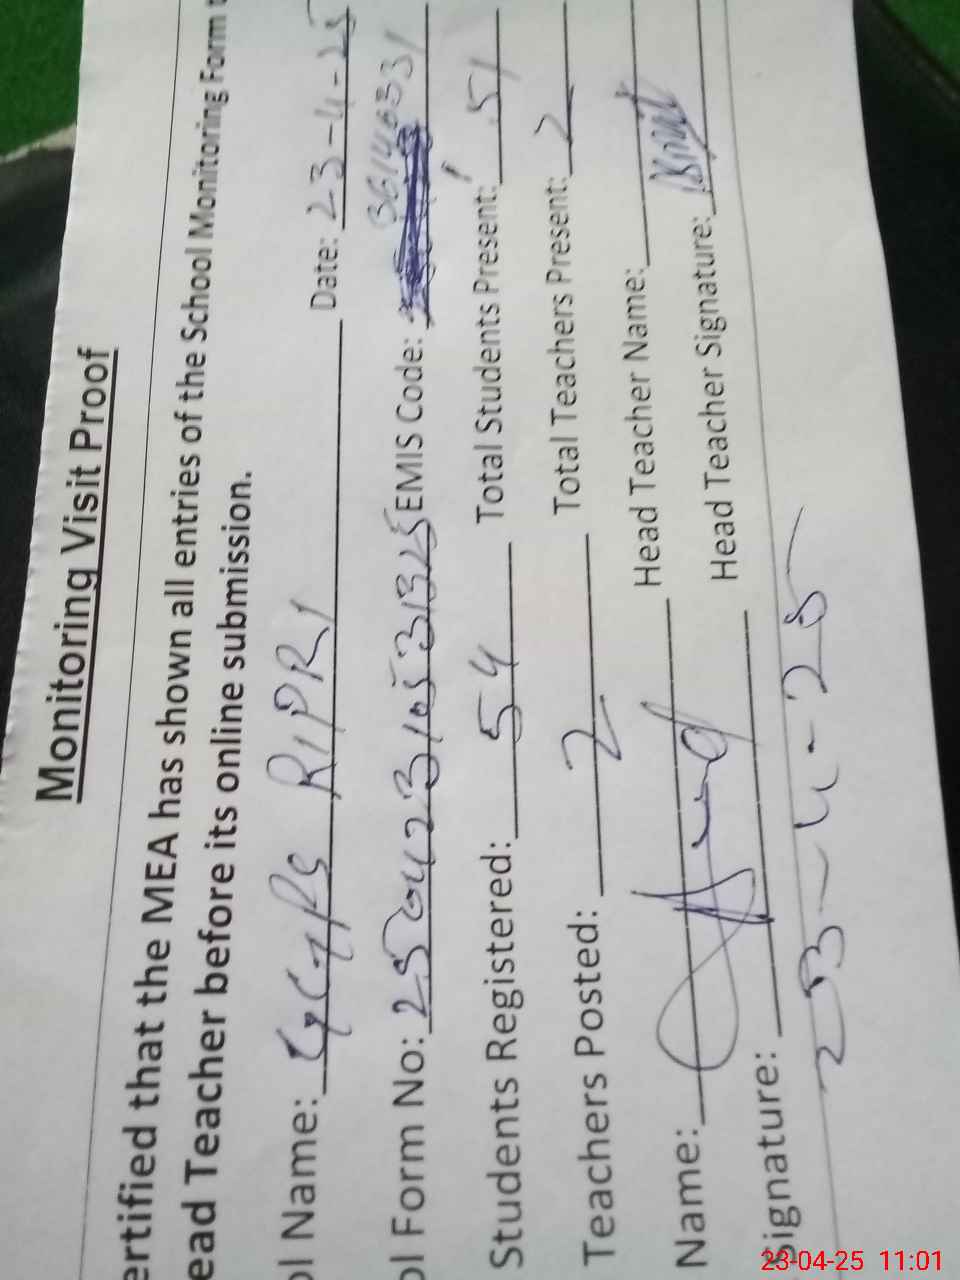 Monitoring Visit Proof
ertified that the MEA has shown all entries of the School Monitoring Form t
ead Teacher before its online submission.
ol Name: GGPS RIPRI Date: 23-4-25
ol Form No: 25042310531325 EMIS Code: 36140331
Students Registered: 54 Total Students Present: 51
Teachers Posted: 2 Total Teachers Present: 2
Name: Head Teacher Name:
Signature: Head Teacher Signature:
23-4-25
23-04-25 11:01